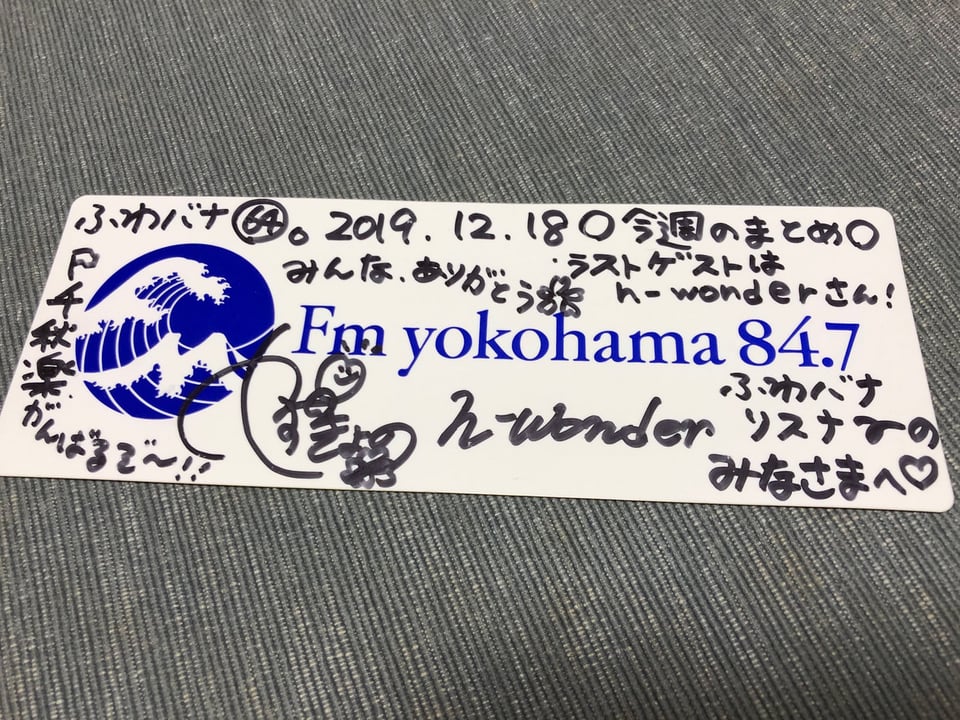 ふわバナ64。2019.12.18○今週のまとめ○
みんな、ありがとう
ラストゲストは
h-wonderさん!
千秋楽がんばるぞ〜!!
Fm yokohama 84.7
h-wonder
ふわバナ
リスナーの
みなさまへ♡